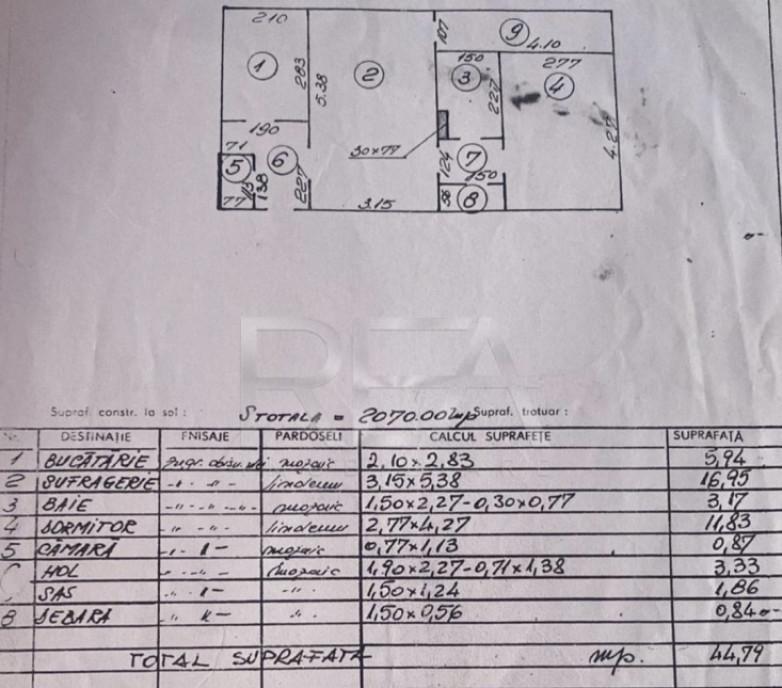 210
107
9
4.10
1
283
2
5.38
150
3
277
4
227
4.27
190
71
30x77
5
6
7
124
150
115
138
227
77
3.15
56
8
REA
Supraf. constr. la sol :
STOTALA = 2070.00mp Supraf. trotuar :
Nr. DESTINAȚIE FINISAJE PARDOSELI CALCUL SUPRAFEȚE SUPRAFAȚA
1 BUCĂTĂRIE zugr. mozaic 2,10 x 2,83 5,94
2 SUFRAGERIE -"- -"- linoleum 3,15x5,38 16,95
3 BAIE -"- -"- mozaic 1,50x2,27-0,30x0,77 3,17
4 DORMITOR -"- -"- linoleum 2,77x4,27 11,83
5 CĂMARĂ mozaic 0,77x1,13 0,87
HOL -"- mozaic 1,90x2,27-0,71x1,38 3,33
SAS -"- -"- 1,50x1,24 1,86
8 DEBARA -"- -"- 1,50x0,56 0,84
TOTAL SUPRAFAȚA mp. 44,79